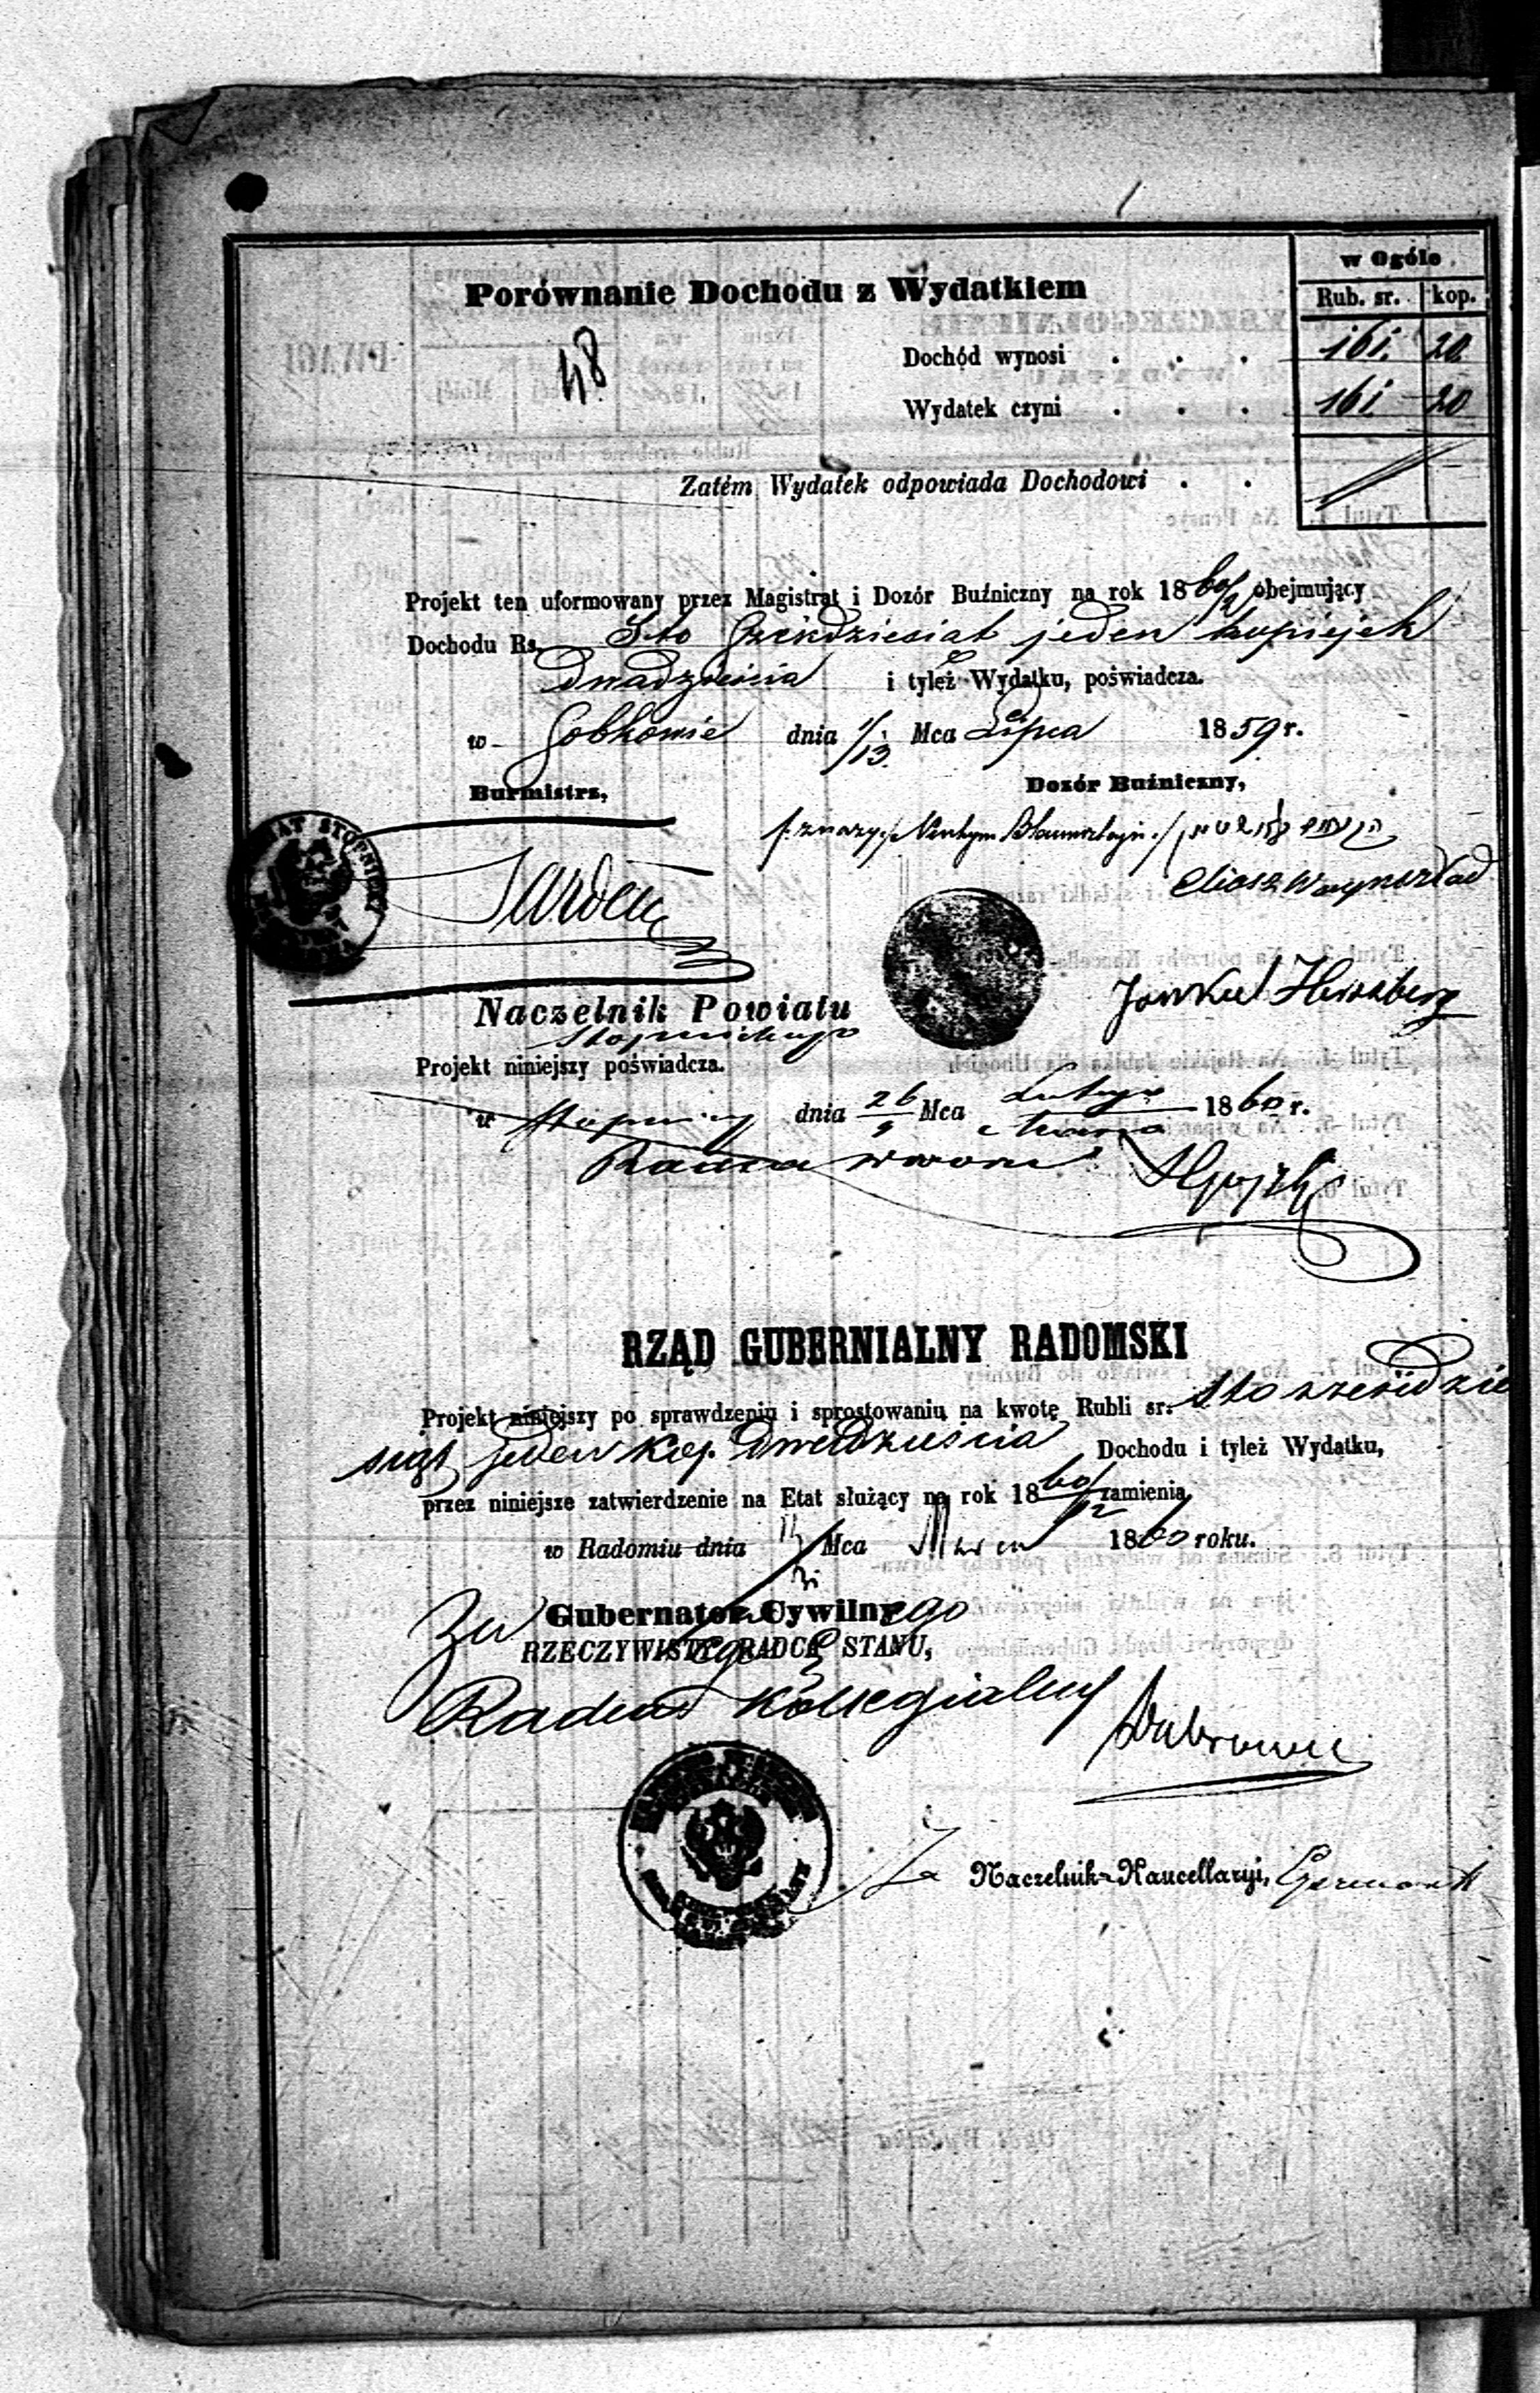 w Ogóle
Rub. sr. kop.
Porównanie Dochodu z Wydatkiem
48
Dochód wynosi . . . 161. 20.
Wydatek czyni . . . 161 20
Zatém Wydatek odpowiada Dochodowi . .
Projekt ten uformowany przez Magistrat i Dozór Buźniczny na rok 1860/2 obejmujący
Dochodu Rs. Sto sześćdziesiąt jeden kopiejek
dwadzieścia i tyleż Wydatku, poświadcza.
w dnia 1/13. Mca Lipca 1859 r.
Burmistrz, Dozór Buźniczny,
Jankiel Herszberg
Naczelnik Powiatu
Stopnickiego
Projekt niniejszy poświadcza.
w Stopnicy dnia 26/9 Mca Lutego/Marca 1860 r.
Radca Dworu
RZĄD GUBERNIALNY RADOMSKI
Projekt niniejszy po sprawdzeniu i sprostowaniu na kwotę Rubli sr. sto sześćdzie
siąt jeden kop. dwadzieścia Dochodu i tyleż Wydatku,
przez niniejsze zatwierdzenie na Etat służący na rok 1860/2 zamienia.
w Radomiu dnia Mca Marca 1860 roku.
Za Gubernator Cywilny ego
RZECZYWISTY RADCA STANU,
Radca Kollegialny
Za Naczelnik Kancellaryi,